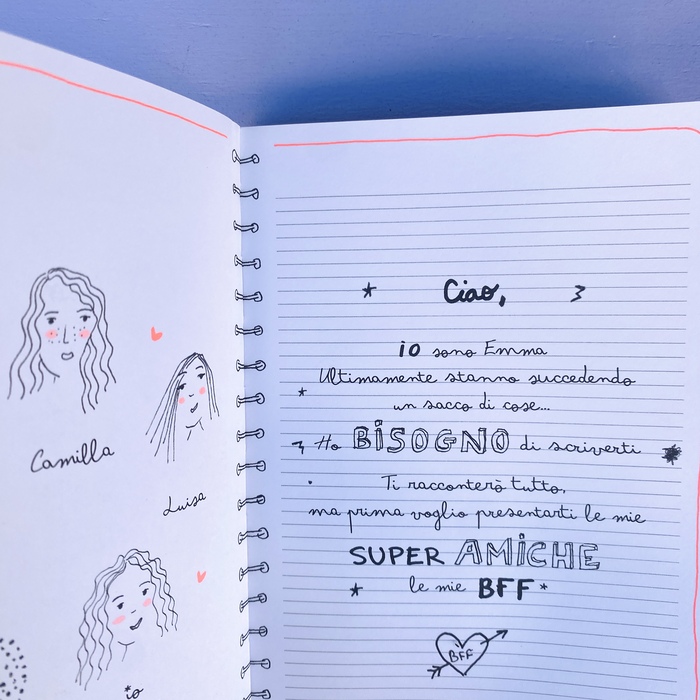 Camilla
Luisa
io
Ciao,
io sono Emma
Ultimamente stanno succedendo
un sacco di cose...
Ho BiSOGNO di scriverti
Ti racconterò tutto,
ma prima voglio presentarti le mie
SUPER AMiCHE
le mie BFF
BFF